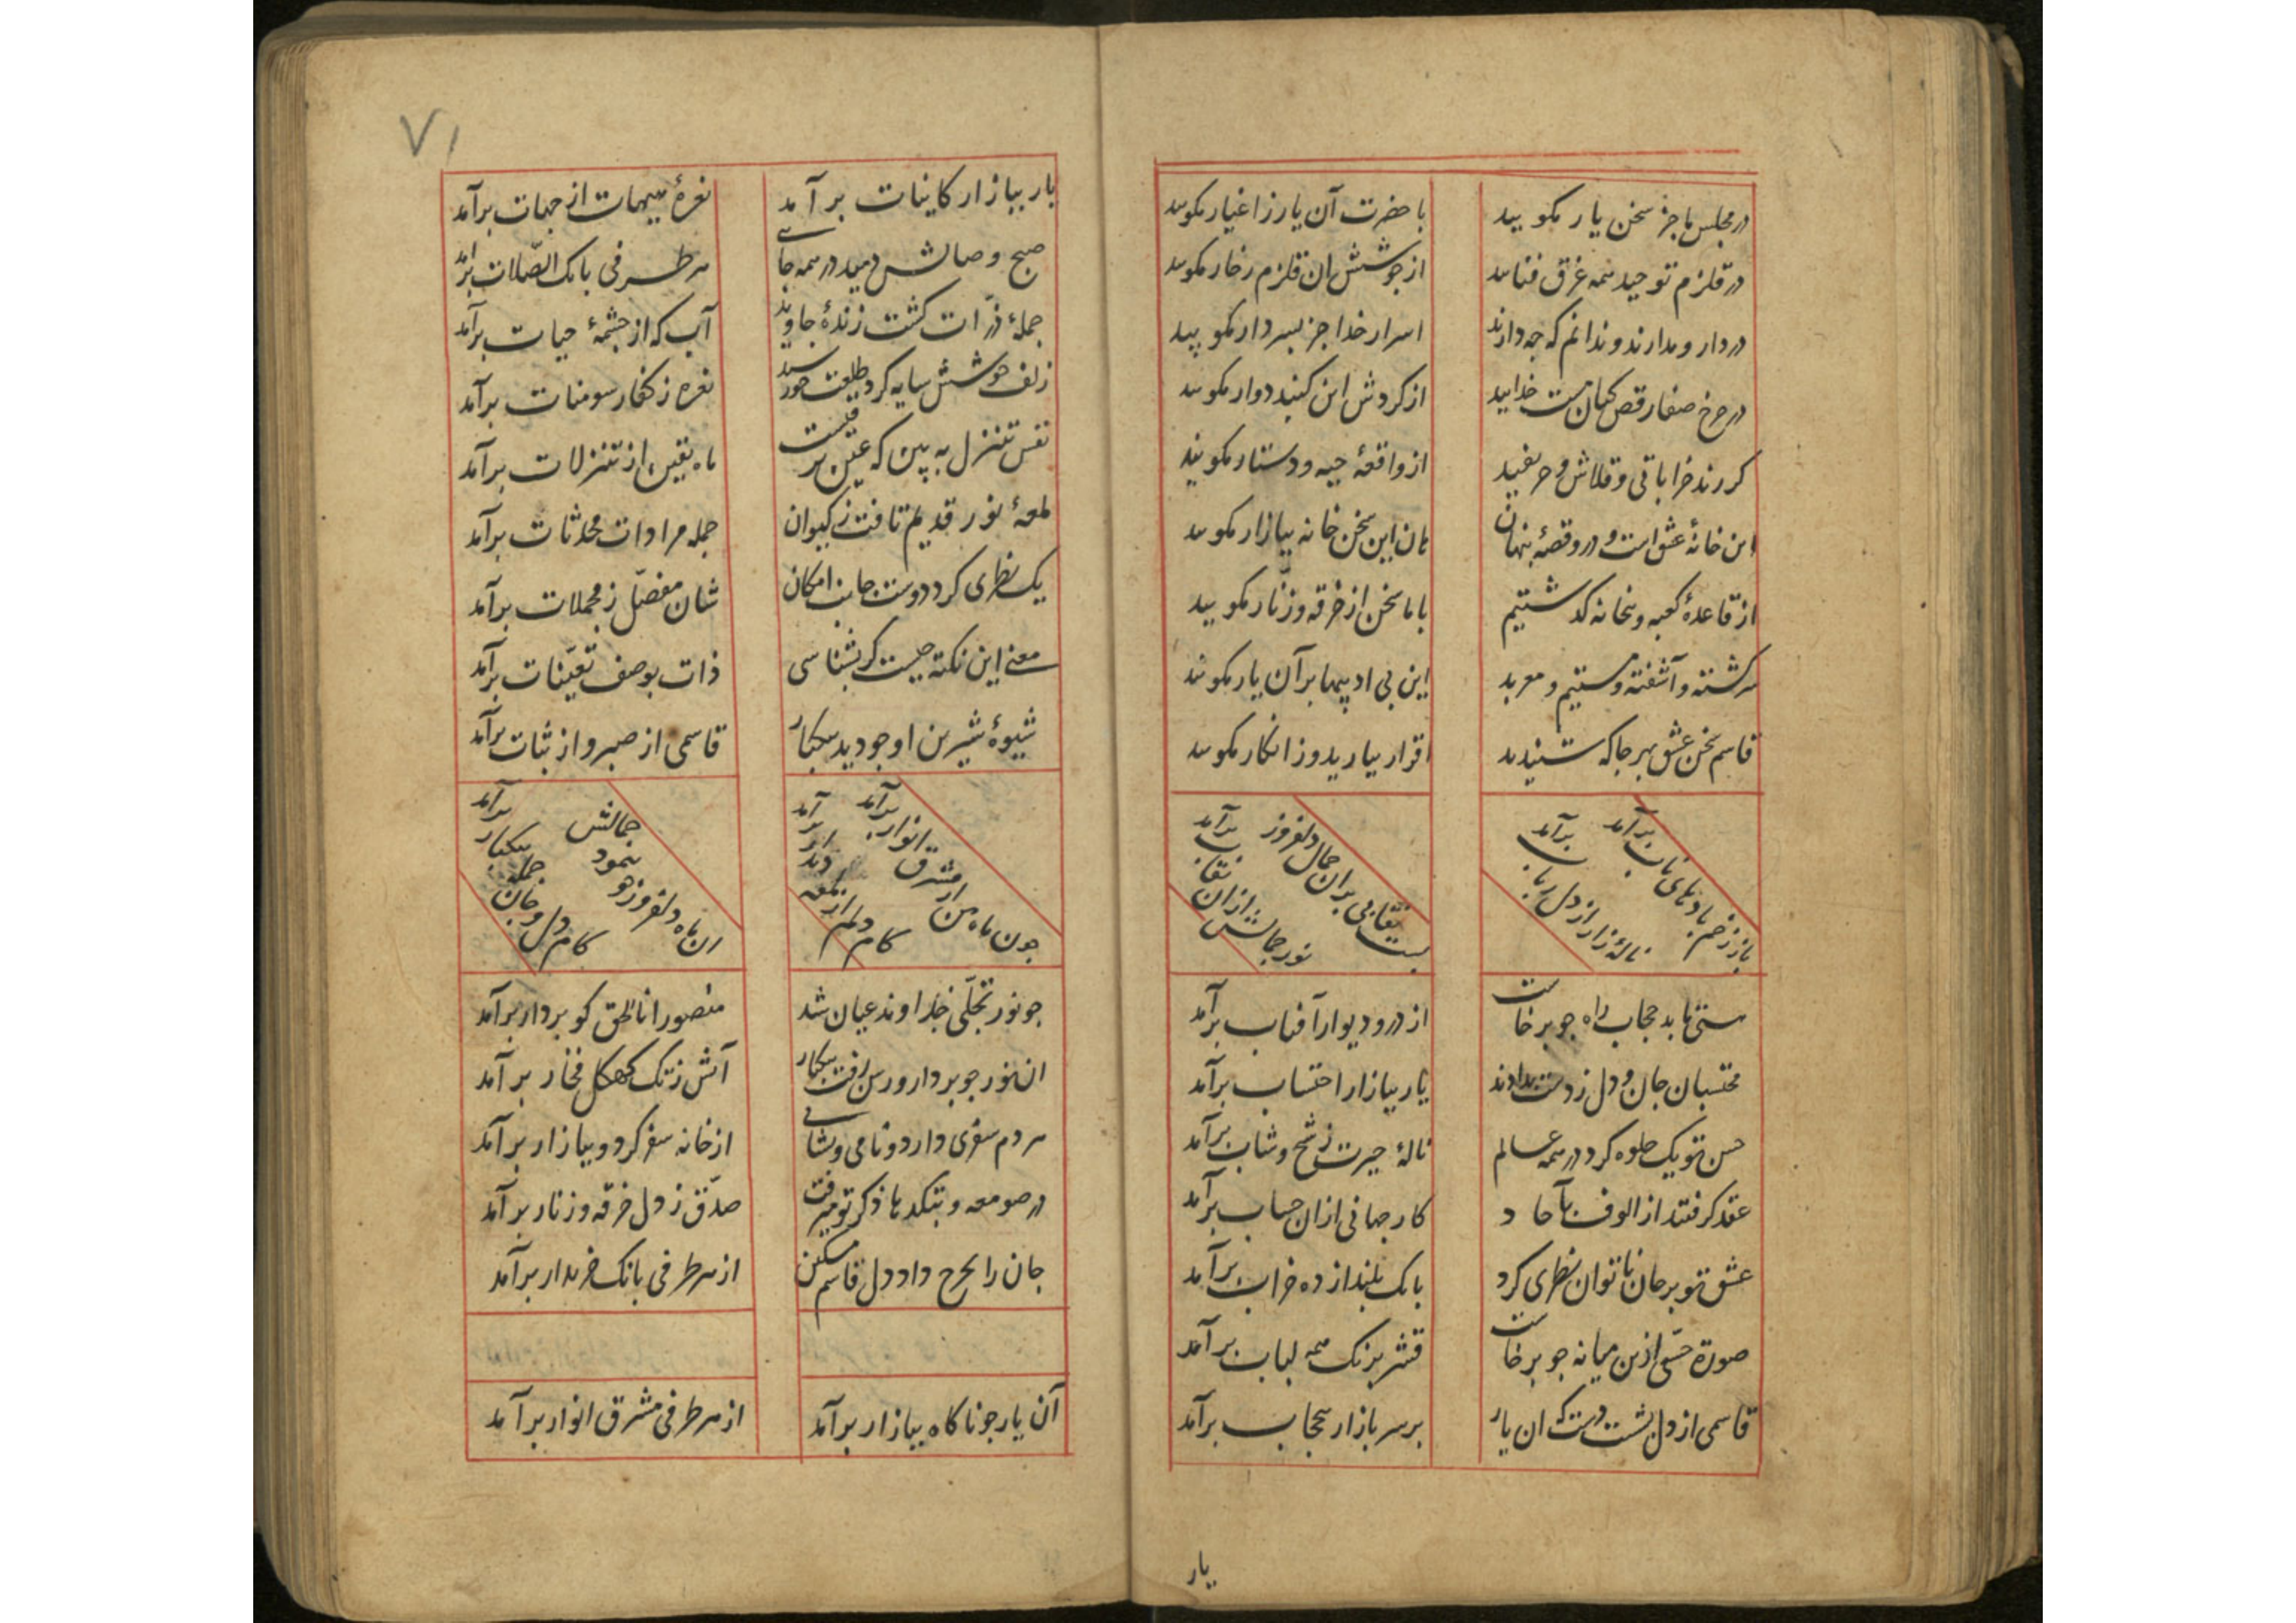 در مجلس ما جز سخن یار مکویید
با حضرت آن یار ز اغیار مکوید
در قلزم توحید همه غرق فنااید
از جوشش ان قلزم زخار مکوید
در دار و مدارند و ندانم که چه دارند
اسرار خدا جز بسر دار مکویید
در چرخ صفا رقص کنان مست خدایید
از کردش این کنبد دوار مکویید
کر رند خراباتی و قلاش و حریفید
از واقعهٔ جبه و دستار مکویید
این خانهٔ عشق است و درو قصهٔ پنهان
هان این سخن خانه ببازار مکویید
از قاعدهٔ کعبه و بتخانه کذشتیم
با ما سخن از خرقه و زنّار مکویید
سرکشته و آشفته و مستیم و معربد
این بی ادبیها بر آن یار مکویید
قاسم سخن عشق بهر جا که شنیدید
اقرار بیارید و ز انکار مکویید
باز ز خم بادهای ناب برآمد
نالهٔ زار از دل رباب برآمد
بست نقابی بران جمال دلفروز
نور جمالش ازان نقاب برآمد
هستی ما بد حجاب راه چو برخاست
از در و دیوار آفتاب برآمد
محتسبان جان و دل ز دست بدادند
یار ببازار احتساب برآمد
حسن تو یک جلوه کرد در همه عالم
نالهٔ حیرت ز شیخ و شاب برآمد
عقد کرفتند از الوف بآحاد
کار جهانی ازان حساب برآمد
عشق تو بر جان ناتوان نظری کرد
بانک بلند از ده خراب برآمد
صورة حسّی ازین میانه چو برخاست
قشر برنک همه لباب برآمد
قاسمی از دل بشست دست که ان یار
بر سر بازار بیحجاب برآمد
یار
۷۱
یار ببازار کاینات برآمد
نعرهٔ هیهات از جهات برآمد
صبح وصالش دمید در همه جایی
هر طرفی بانک الصّلات برآمد
جملهٔ ذرّات کشت زندهٔ جاوید
آب که از چشمهٔ حیات برآمد
زلف خوشش سایه کرد طلعت خورشید
نعره ز کفار سومنات برآمد
نفس تنزل به بین که عین ترقیست
ماه یقین از تنزلات برآمد
لمعهٔ نور قدیم تافت ز کیوان
جمله مرادات محدثات برآمد
یک نظری کرد دوست جانب امکان
شان مفصّل ز مجملات برآمد
معنی این نکته چیست کر بشناسی
ذات بوصف تعیّنات برآمد
شیوهٔ شیرین او چو دید بیکبار
قاسمی از صبر و از ثبات برآمد
چون ماه من از مشرق انوار برآمد
کام دلم از لمعه دیدار برآمد
ان ماه دلفروز چو بنمود جمالش
کام دل و جان جمله بیکبار برآمد
چو نور تجلّی خداوند عیان شد
منصور انا الحق کو بر دار برآمد
ان نور چو بر دار و رسن رفت بیکبار
آتش ز تک کهکل فخار برآمد
هر دم سفری دارد و نامی و نشانی
از خانه سفر کرد و ببازار برآمد
در صومعه و بتکدها ذکر تو میرفت
صدق ز دل خرقه و زنار برآمد
جان را بخرج داد دل قاسم مسکین
از هر طرفی بانک خریدار برآمد
آن یار چو ناکاه ببازار برآمد
از هر طرفی مشرق انوار برآمد